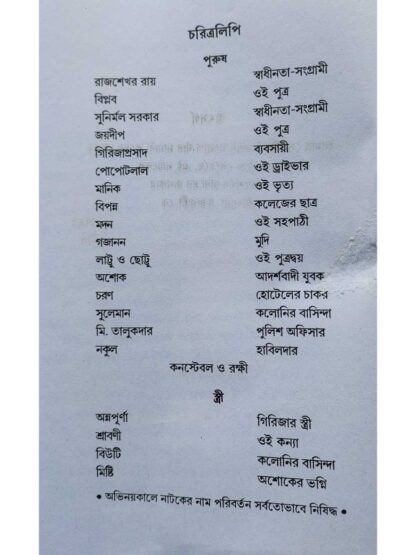 চরিত্রলিপি
পুরুষ
রাজশেখর রায় স্বাধীনতা-সংগ্রামী
বিপ্লব ওই পুত্র
সুনির্মল সরকার স্বাধীনতা-সংগ্রামী
জয়দীপ ওই পুত্র
গিরিজাপ্রসাদ ব্যবসায়ী
পোপোটলাল ওই ড্রাইভার
মানিক ওই ভৃত্য
বিপন্ন কলেজের ছাত্র
মদন ওই সহপাঠী
গজানন মুদি
লাট্টু ও ছোট্টু ওই পুত্রদ্বয়
অশোক আদর্শবাদী যুবক
চরণ হোটেলের চাকর
সুলেমান কলোনির বাসিন্দা
মি. তালুকদার পুলিশ অফিসার
নকুল হাবিলদার
কনস্টেবল ও রক্ষী
স্ত্রী
অন্নপূর্ণা গিরিজার স্ত্রী
শ্রাবণী ওই কন্যা
বিউটি কলোনির বাসিন্দা
মিষ্টি অশোকের ভগ্নি
• অভিনয়কালে নাটকের নাম পরিবর্তন সর্বতোভাবে নিষিদ্ধ •